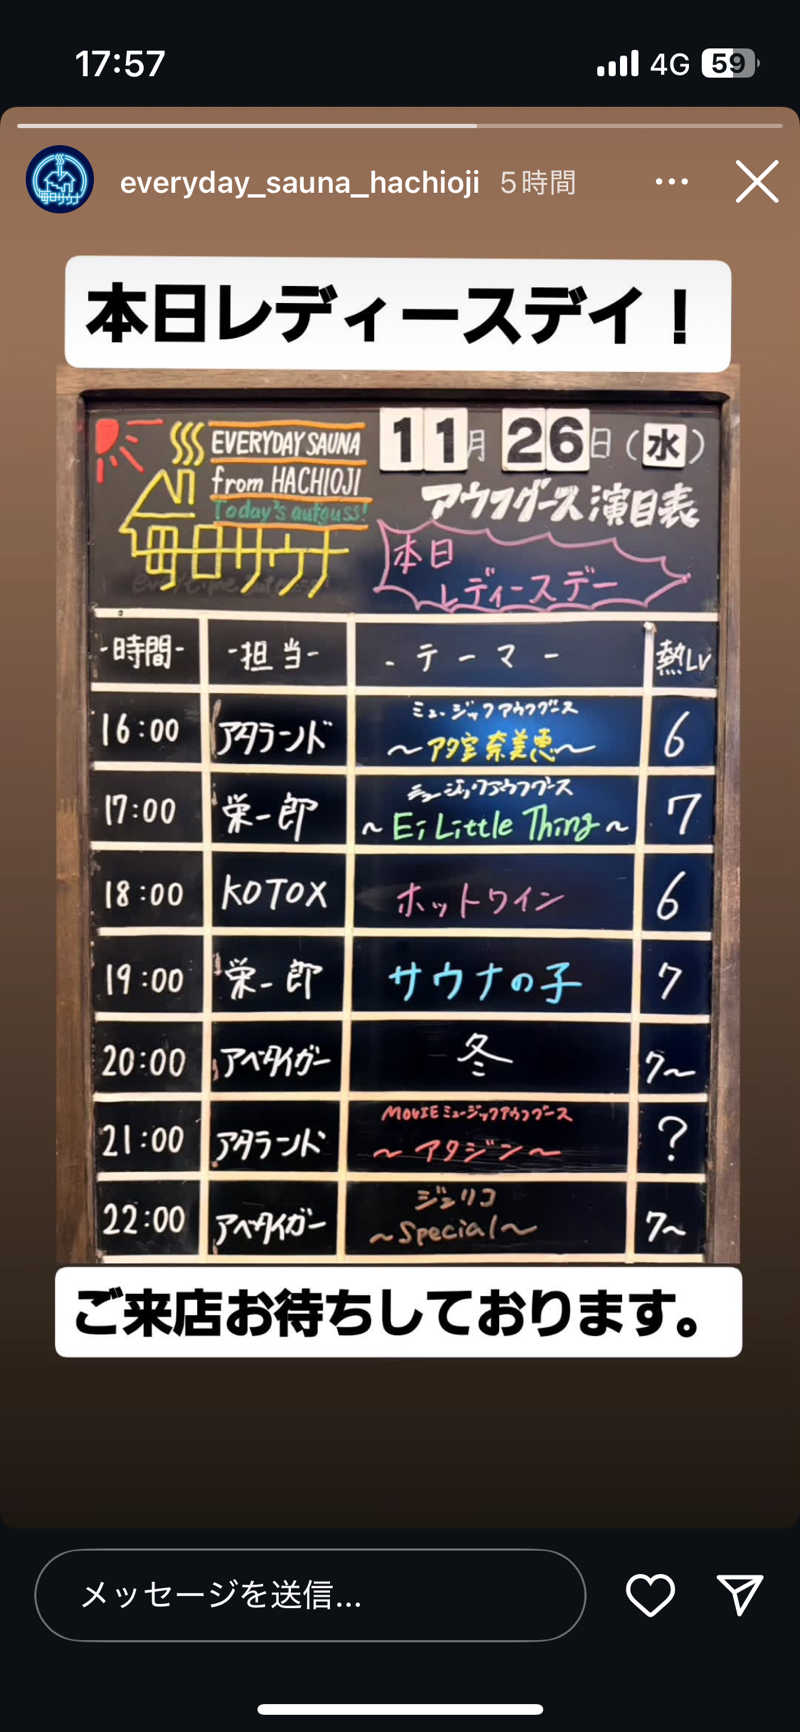 17:57
4G 59
everyday_sauna_hachioji 5時間
本日レディースデイ！
EVERYDAY SAUNA
from HACHIOJI
Today's aufguss!
毎日サウナ
11月26日(水)
アウフグース演目表
本日
レディースデー
-時間- -担当- -テーマ- 熱Lv
16:00 アタランド ミュージックアウフグース 6
～アタ室奈美恵～
17:00 栄一郎 ミュージックアウフグース 7
～Ei Little Thing～
18:00 KOTOX ホットワイン 6
19:00 栄一郎 サウナの子 7
20:00 アベタイガー 冬 7～
21:00 アタランド MOVIEミュージックアウフグース ?
～アタジン～
22:00 アベタイガー ジェリコ 7～
～Special～
ご来店お待ちしております。
メッセージを送信...